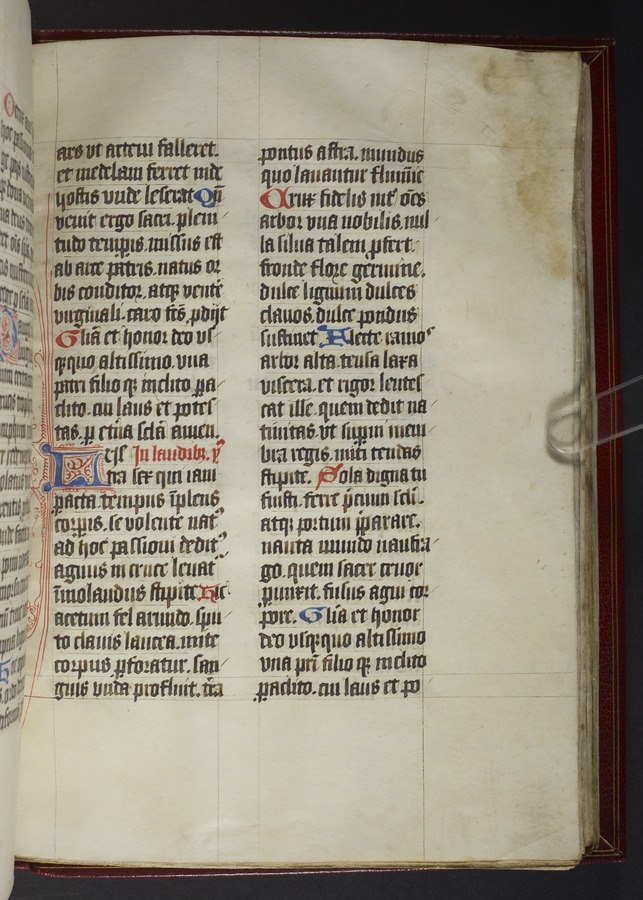 ars vt artem falleret.
et medelam ferret inde
hostis vnde leserat Qn̄
venit ergo sacri pleni
tudo temp̲is. missus est
ab arce patris. natus or
bis conditor. atqꝫ ventre
virginali. caro fc̄s. ꝓdijt
Gl̄ia et honor deo vs
qꝫquo altissimo. vna
patri filio qꝫ inclito pa
clito. cui laus et potes
tas. p̲ et̄na sc̄la amen.
In laudibꝫ. ẏ
tra sex qui iam
p̲acta. tempus īplens
corp̲is. se volente nat9
ad hoc passioni dedit9.
agnus in cruce leuat̉
īmolandus stipite Hic
acetum fel arundo. spu
to clauis lancea. mite
corpus p̲foratur. san
guis vnda profluit. tr̄a
pontus astra. mundus
quo lauantur flumīe
Crux fidelis int̉ oēs
arbor vna nobilis. nul
la silua talem ꝓfert.
fronde flore germine.
dulce lignum dulces
clauos. dulce pondus
sustinet Flecte ramos
arbor alta. tensa laxa
viscera. et rigor lentes
cat ille. quem dedit na
tiuitas. vt sup̲ni mem
bra regis. miti tendas
stipite. Sola digna tu
fuisti. ferre p̄cium sc̄li.
atqꝫ portum p̄parare.
nauta mundo naufra
go. quem sacer cruor
p̲unxit. fusus agni cor
pore. Gl̄ia et honor
deo vsqꝫquo altissimo
vna pr̄i filio qꝫ inclito
paclito. cui laus et po